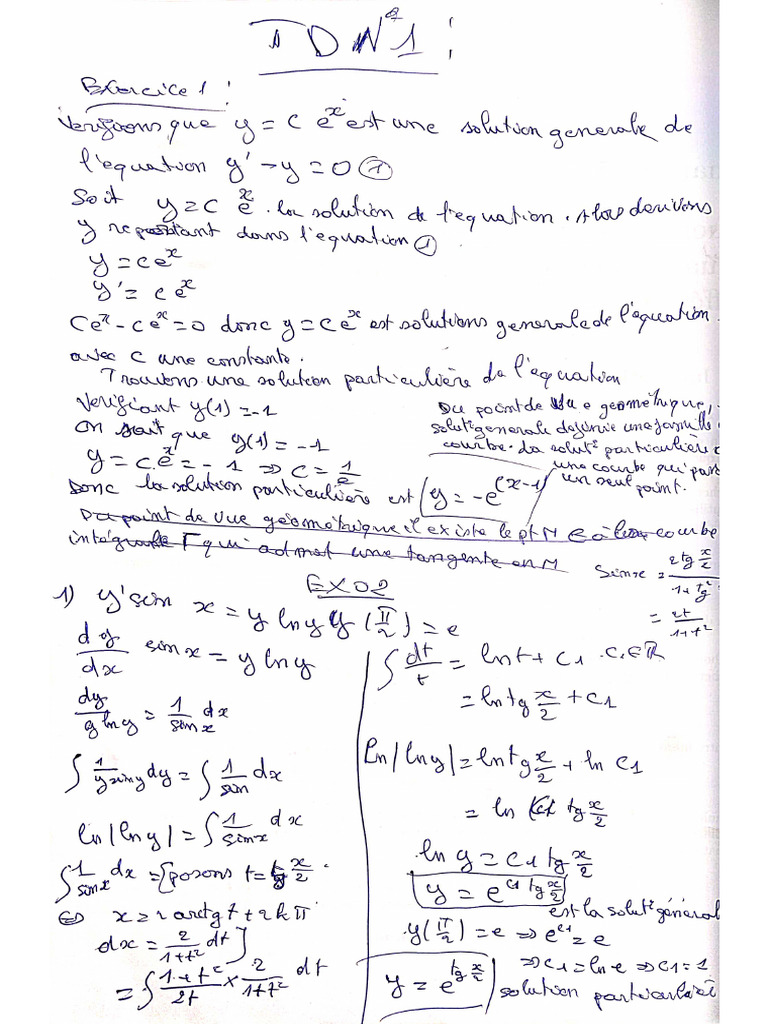 TDN°1 :
Exercice 1 :
Verifions que y = c e^x est une solution generale de
l'equation y' - y = 0 ①
Soit y = c e^x. la solution de l'equation. Alors derivons
y reportant dans l'equation ①
y = ce^x
y' = ce^x
ce^x - ce^x = 0 donc y = ce^x est solutions generale de l'équation.
avec c une constante.
Trouvons une solution particulière de l'equation
Verifiant y(1) = -1
On sait que y(1) = -1
y = c.e^x = -1 ⇒ c = 1/e
Donc la solution particulière est y = -e^(x-1)
Du point de vue géométrique,
solut° generale definie une famille
courbe. La solut° particulière
une courbe qui pas
un seul point.
Du point de vue géométrique il existe le pt M ∈ à la courbe
intégrale Γ qui admet une tangente en M
EXO2
sinx = 2tg x/2 / 1+tg²
= 2t / 1+t²
1) y' sin x = y ln y y(π/2) = e
dy/dx sin x = y ln y
dy / y ln y = 1/sin x dx
∫ 1/y sin y dy = ∫ 1/sin dx
ln|ln y| = ∫ 1/sin x dx
∫ 1/sin x dx = [posons t = tg x/2
⇔ x = 2 arctg t + 2kπ
dx = 2/1+t² dt]
= ∫ 1+t²/2t × 2/1+t² dt
∫ dt/t = ln t + c1 . c1 ∈ ℝ
= ln tg x/2 + c1
ln|ln y| = ln tg x/2 + ln c1
= ln c1 tg x/2
ln y = c1 tg x/2
y = e^(c1 tg x/2)
est la solut° général
y(π/2) = e ⇒ e^c1 = e
⇒ c1 = ln e ⇒ c1 = 1
y = e^(tg x/2) solution particulière